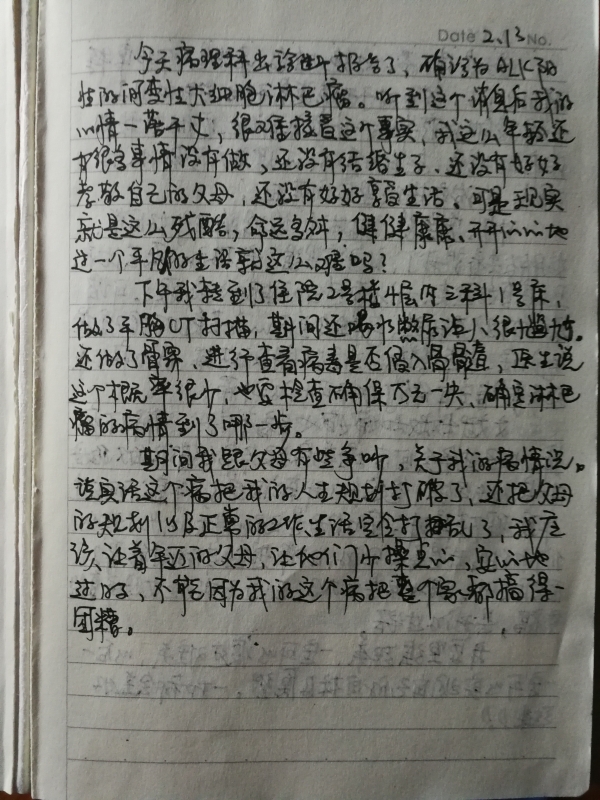 Date 2.13 No.
今天病理科出诊断报告了，确诊为ALK阳
性的间变性大细胞淋巴瘤。听到这个消息后我的
心情一落千丈，很难接受这个事实，我这么年轻还
有很多事情没有做，还没有结婚生子、还没有好好
孝敬自己的父母，还没有好好享受生活。可是现实
就是这么残酷，命运多舛，健健康康、开开心心地
过一个平凡的生活就这么难吗？
下午我转到了住院2号楼4层内三科1号床，
做了平胸CT扫描，期间还喝水憋尿
还做了骨穿、进行查看病毒是否侵入骨髓，医生说
这个概率很小，也要检查确保万无一失、确定淋巴
瘤的病情到了哪一步。
期间我跟父母有些争吵，关于我的病情况。
说实话这个病把我的人生规划打碎了，还把父母
的规划以及正常的工作、生活完全打乱了，我应
该让着年迈的父母，让他们少操点心，安心地
过的，不能因为我的这个病把整个家都搞得一
团糟。